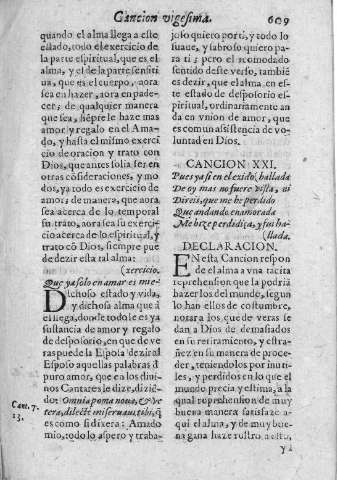 Cancion vigesima. 609
quando el alma llega a este
estado, todo el exercicio de
la parte espiritual, que es el
alma, y el de la parte sensiti
ua, que es el cuerpo, aora
sea en hazer, aora en pade-
cer; de qualquier manera
que sea, siẽpre le haze mas
amor y regalo en el Ama-
do, y hasta el mismo exerci
cio de oracion y trato con
Dios, que antes solia ser en
otras cõsideraciones, y mo-
dos, ya todo es exercicio de
amor; de manera, que aora
sea acerca de lo temporal
su trato, aora sea su exerci-
cio acerca de lo espiritual, y
trato cõ Dios, siempre pue
de dezir esta tal alma:
(xercicio.
Que ya solo en amar es mi e-
Dichoso estado y vida,
y dichosa alma que à
el llega, donde todo le es ya
sustancia de amor y regalo
de desposorio, en que de ve
ras puede la Esposa dezir al
Esposo aquellas palabras d̃
puro amor, que en los diui-
nos Cantares le dize, dizie-
do: Omnia poma noua, & ve
tera, dilecte mi seruaui tibi, q̃
es como si dixera: Amado
mio, todo lo aspero y traba-
Cant. 7.
13.
joso quiero por ti, y todo lo
suaue, y sabroso quiero pa-
ra ti; pero el acomodado
sentido deste verso, tambiẽ
es dezir, que el alma, en es-
te estado de desposorio es-
piritual, ordinariamente an
da en vnion de amor, que
es comun assistencia de vo-
luntad en Dios.
CANCION XXI.
Pues ya si en el exido, hallada
De oy mas no fuere vista, ni
Direis, que me he perdido
Que andando enamorada
Me hize perdidiza, y fui ha-
(llada.
DECLARACION.
EN esta Cancion respon
de el alma a vna tacita
reprehension que la podriã
hazer los del mundo, segun
lo han ellos de costumbre,
notara los que de veras se
dan a Dios de demasiados
en su retiramiento, y estra-
ñez en su manera de proce-
der, teniendolos por inuti-
les, y perdidos en lo que el
mundo precia y estima, a la
qual reprehension de muy
buena manera satisfaze a-
qui el alma, y de muy bue-
na gana haze rostro a esto,
y a